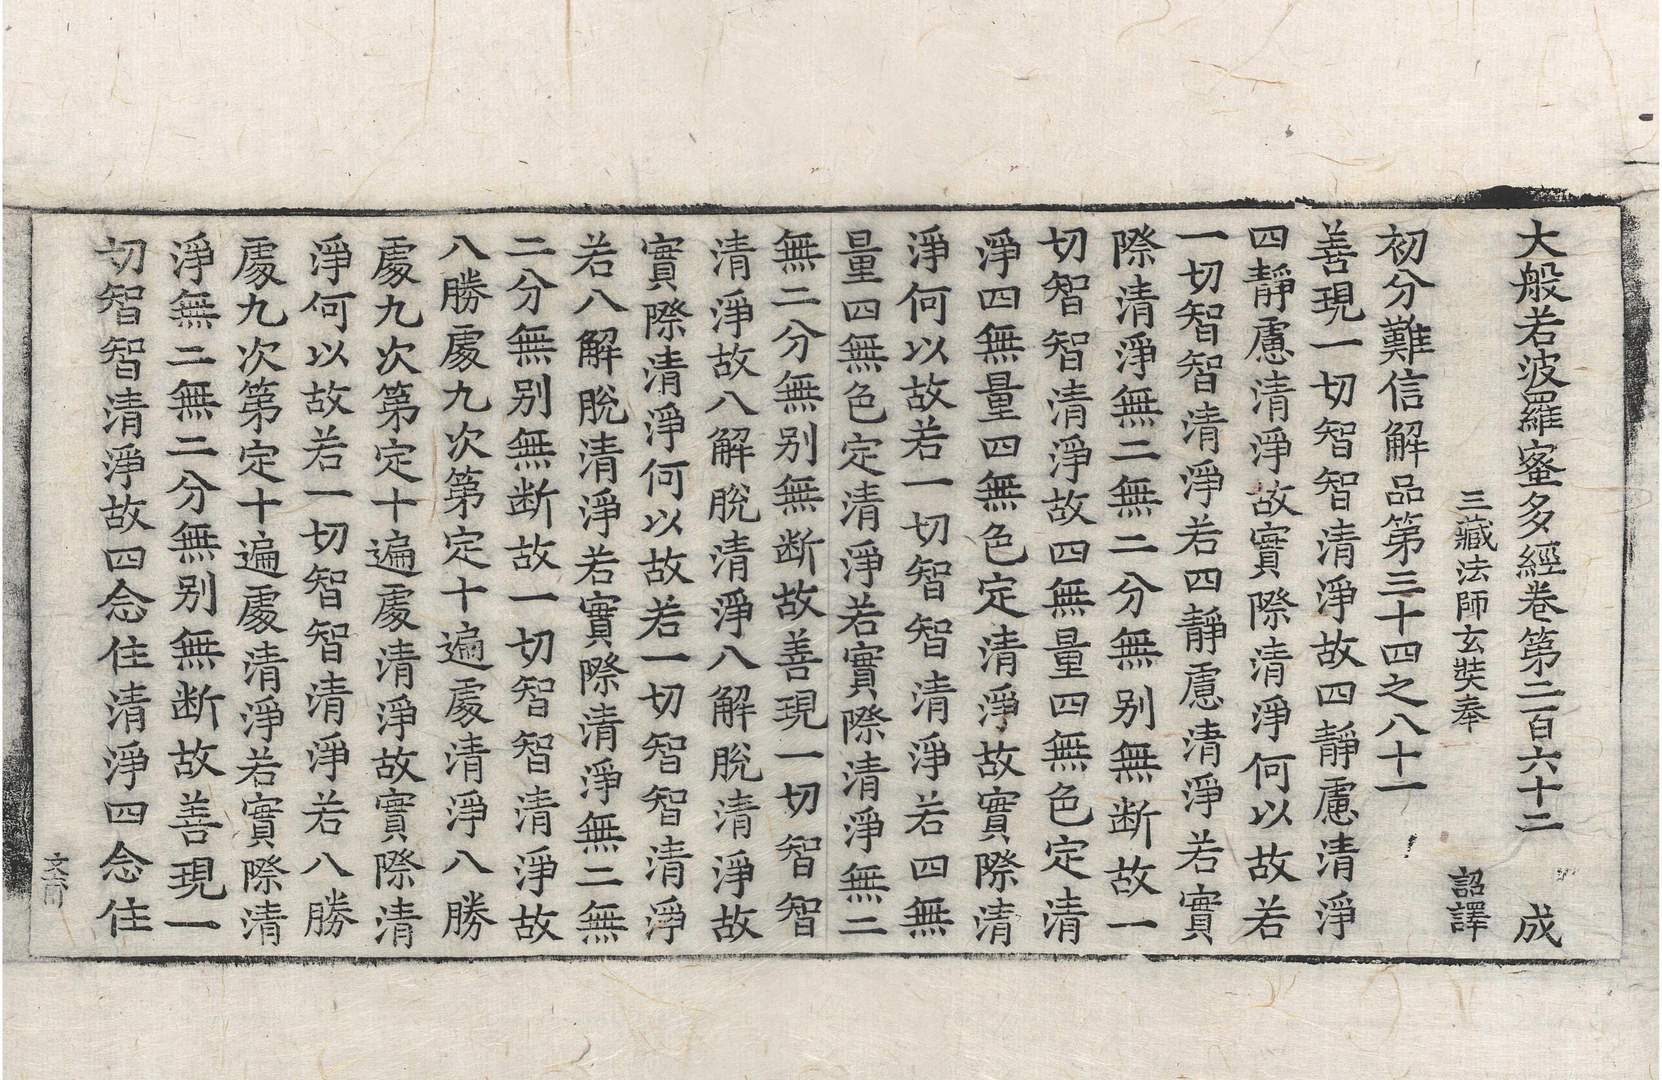 大般若波羅蜜多經卷第二百六十二 成
三藏法師玄奘奉 詔譯
初分難信解品第三十四之八十一
善現一切智智清淨故四靜慮清淨
四靜慮清淨故實際清淨何以故若
一切智智清淨若四靜慮清淨若實
際清淨無二無二分無别無断故一
切智智清淨故四無量四無色定清
淨四無量四無色定清淨故實際清
淨何以故若一切智智清淨若四無
量四無色定清淨若實際清淨無二
無二分無别無断故善現一切智智
清淨故八解脫清淨八解脫清淨故
實際清淨何以故若一切智智清淨
若八解脫清淨若實際清淨無二無
二分無别無断故一切智智清淨故
八勝處九次第定十遍處清淨八勝
處九次第定十遍處清淨故實際清
淨何以故若一切智智清淨若八勝
處九次第定十遍處清淨若實際清
淨無二無二分無别無断故善現一
切智智清淨故四念住清淨四念住
文